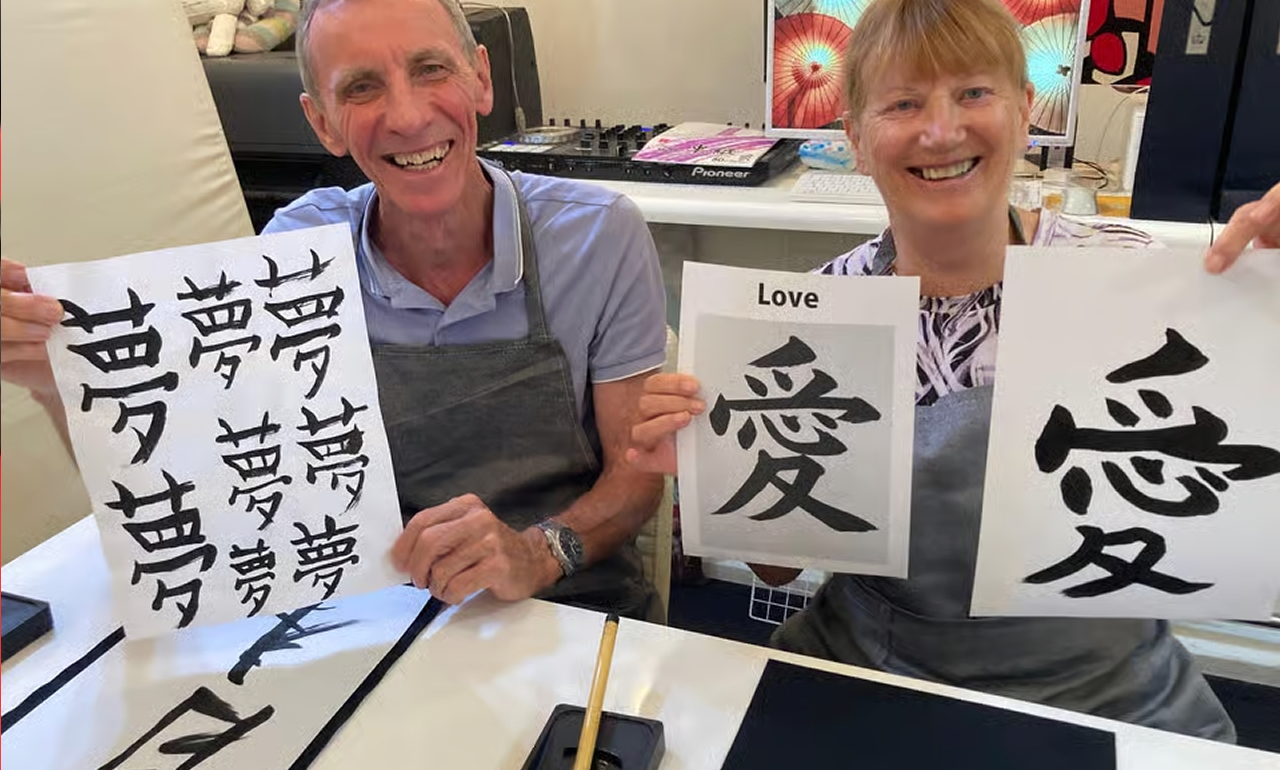 夢夢夢
夢夢夢
夢夢
Love
愛
愛
Pioneer